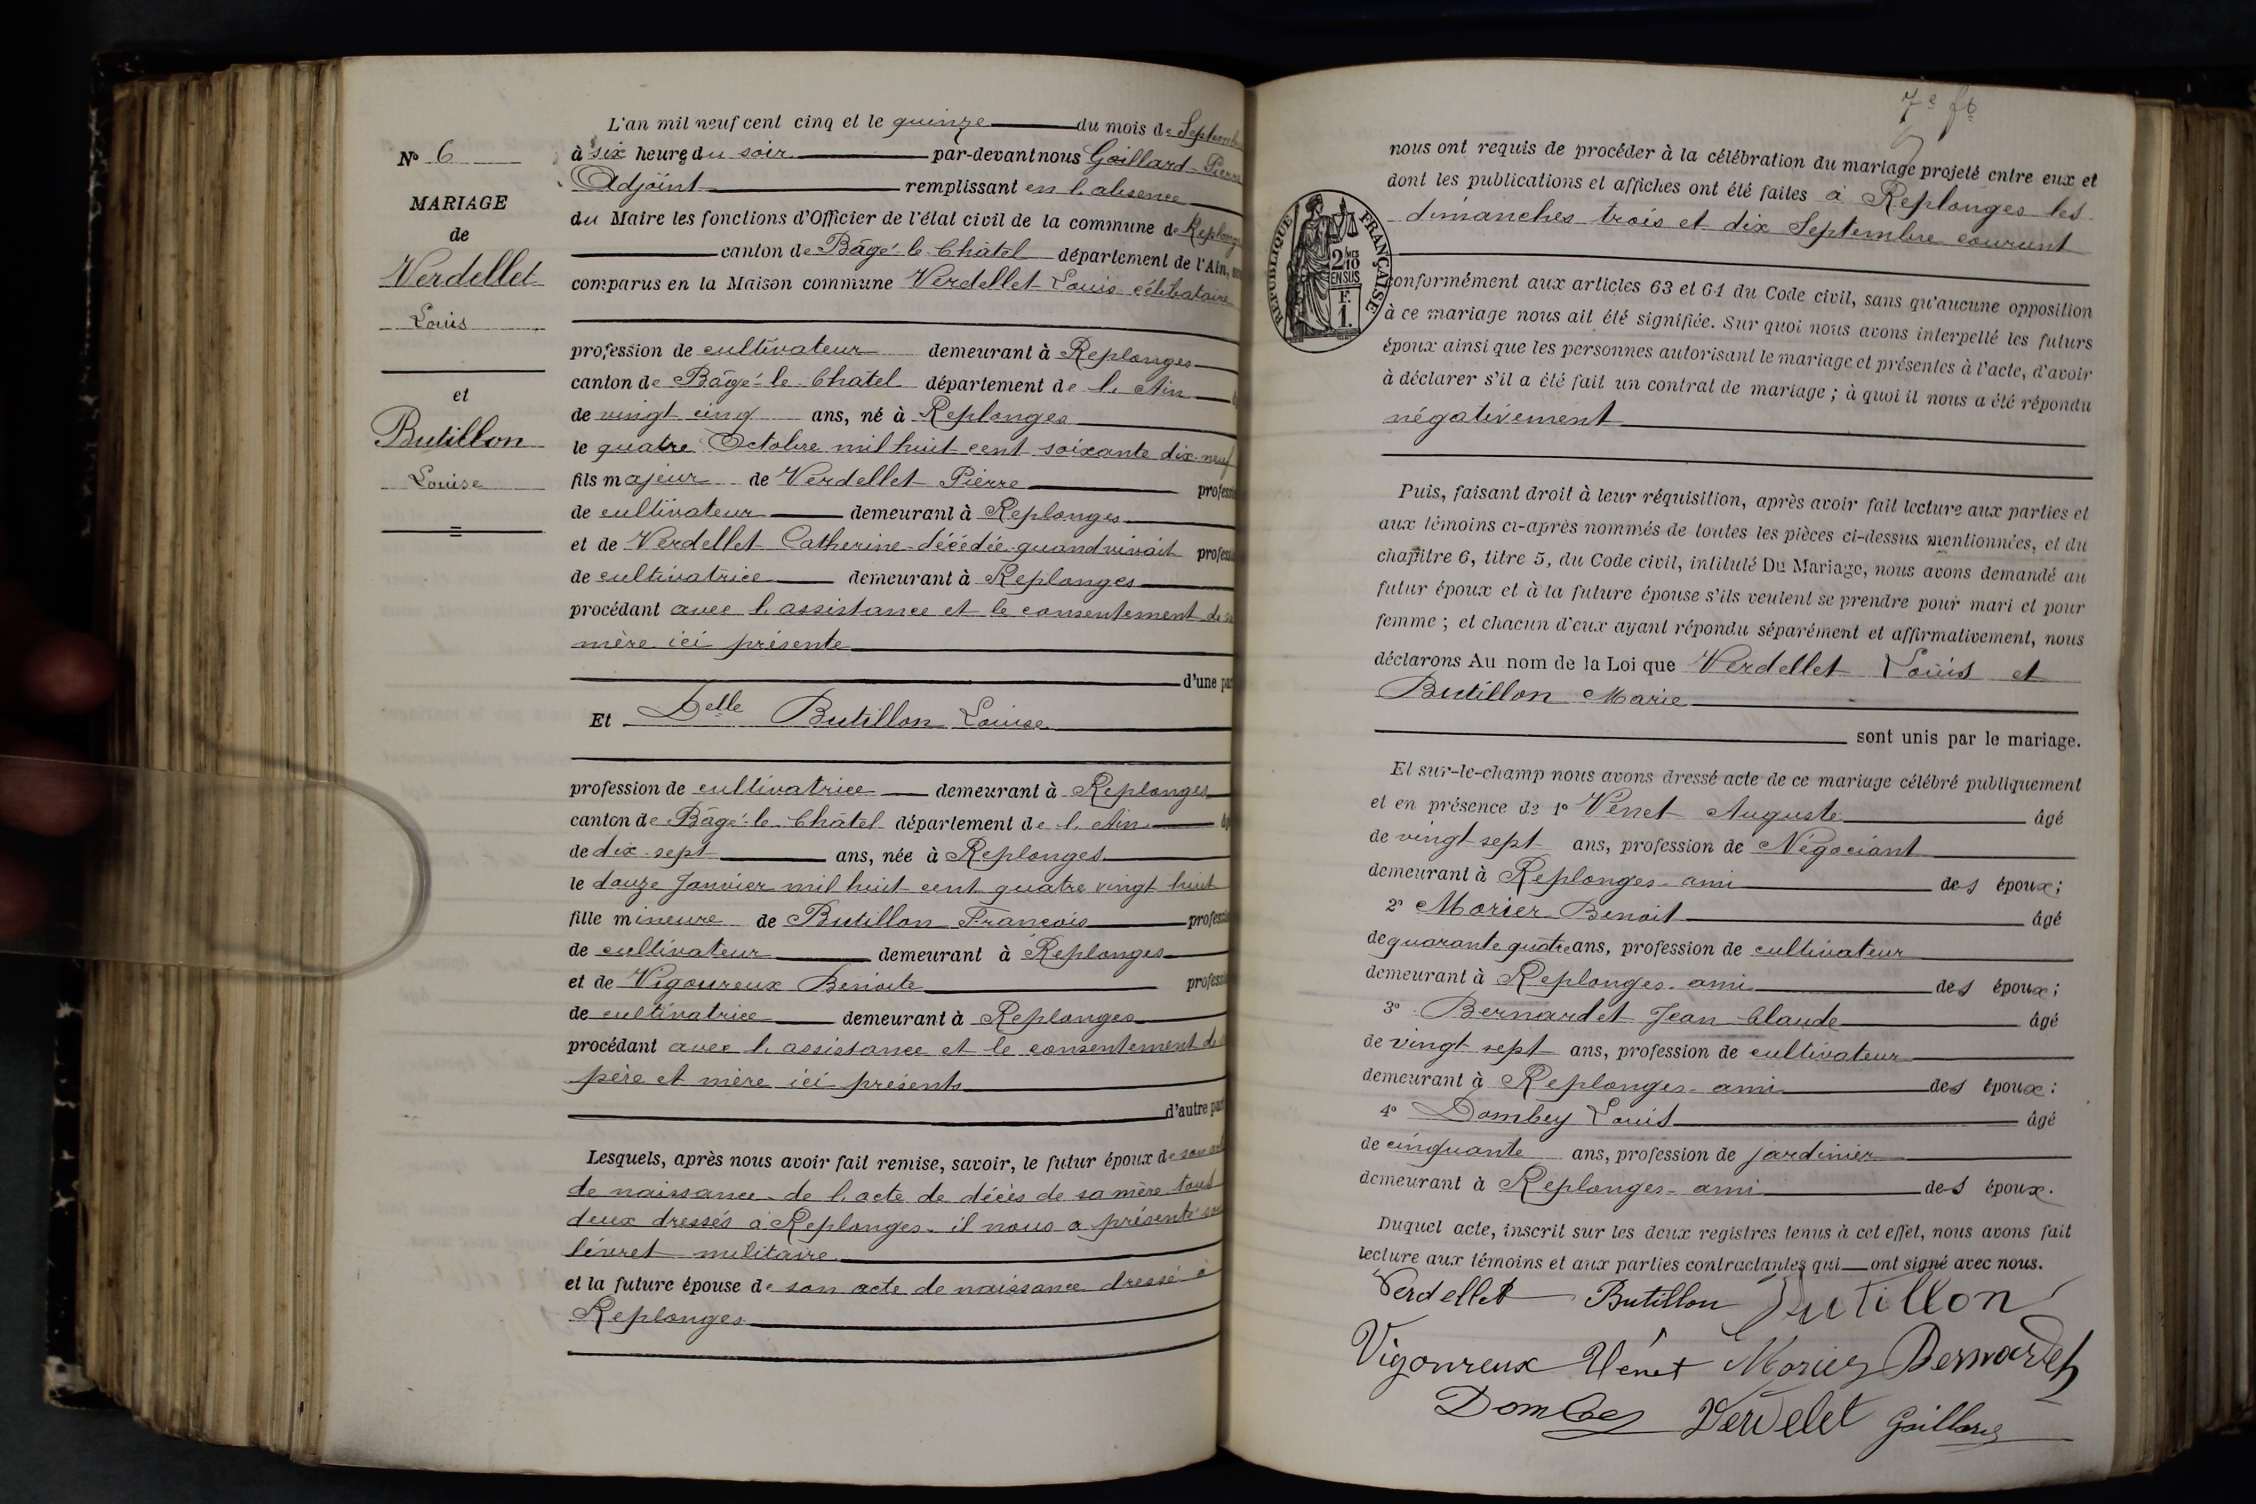 N° 6
MARIAGE
de
Verdellet
Louis
et
Butillon
Louise
L'an mil neuf cent cinq et le quinze du mois de Septembre
à six heures du soir par-devant nous Gaillard Pierre
Adjoint remplissant en l'absence
du Maire les fonctions d'Officier de l'état civil de la commune de Replonges
canton de Bâgé-le-Châtel département de l'Ain,
comparus en la Maison commune Verdellet Louis célibataire
profession de cultivateur demeurant à Replonges
canton de Bâgé-le-Châtel département de l'Ain
de vingt cinq ans, né à Replonges
le quatre Octobre mil huit cent soixante dix-neuf
fils majeur de Verdellet Pierre profession
de cultivateur demeurant à Replonges
et de Verdellet Catherine décédée quand vivait profession
de cultivatrice demeurant à Replonges
procédant avec l'assistance et le consentement de sa
mère ici présente
d'une part
Et Delle Butillon Louise
profession de cultivatrice demeurant à Replonges
canton de Bâgé-le-Châtel département de l'Ain
de dix-sept ans, née à Replonges
le douze Janvier mil huit cent quatre vingt huit
fille mineure de Butillon François profession
de cultivateur demeurant à Replonges
et de Vigoureux Benoite profession
de cultivatrice demeurant à Replonges
procédant avec l'assistance et le consentement de
père et mère ici présents
d'autre part
Lesquels, après nous avoir fait remise, savoir, le futur époux de son acte
de naissance de l'acte de décès de sa mère tous
deux dressés à Replonges. il nous a présenté son
livret militaire
et la future épouse de son acte de naissance dressé à
Replonges
7e fo
nous ont requis de procéder à la célébration du mariage projeté entre eux et
dont les publications et affiches ont été faites à Replonges les
dimanches trois et dix Septembre courant
RÉPUBLIQUE FRANÇAISE
2/10 EN SUS
F. 1.
conformément aux articles 63 et 64 du Code civil, sans qu'aucune opposition
à ce mariage nous ait été signifiée. Sur quoi nous avons interpellé les futurs
époux ainsi que les personnes autorisant le mariage et présentes à l'acte, d'avoir
à déclarer s'il a été fait un contrat de mariage ; à quoi il nous a été répondu
négativement
Puis, faisant droit à leur réquisition, après avoir fait lecture aux parties et
aux témoins ci-après nommés de toutes les pièces ci-dessus mentionnées, et du
chapitre 6, titre 5, du Code civil, intitulé Du Mariage, nous avons demandé au
futur époux et à la future épouse s'ils veulent se prendre pour mari et pour
femme ; et chacun d'eux ayant répondu séparément et affirmativement, nous
déclarons Au nom de la Loi que Verdellet Louis et
Butillon Marie
sont unis par le mariage.
Et sur-le-champ nous avons dressé acte de ce mariage célébré publiquement
et en présence de 1° Venet Auguste âgé
de vingt sept ans, profession de Négociant
demeurant à Replonges ami des époux ;
2° Morier Benoit âgé
de quarante quatre ans, profession de cultivateur
demeurant à Replonges ami des époux ;
3° Bernardet Jean Claude âgé
de vingt sept ans, profession de cultivateur
demeurant à Replonges ami des époux :
4° Dombey Louis âgé
de cinquante ans, profession de jardinier
demeurant à Replonges ami des époux.
Duquel acte, inscrit sur les deux registres tenus à cet effet, nous avons fait
lecture aux témoins et aux parties contractantes qui ont signé avec nous.
Verdellet Butillon Butillon
Vigoureux Vénet Morier Bernardet
Dombey Verdelet Gaillard